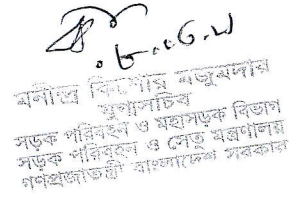 মনীন্দ্র কিশোর মজুমদার
যুগ্মসচিব
সড়ক পরিবহন ও মহাসড়ক বিভাগ
সড়ক পরিবহন ও সেতু মন্ত্রণালয়
গণপ্রজাতন্ত্রী বাংলাদেশ সরকার